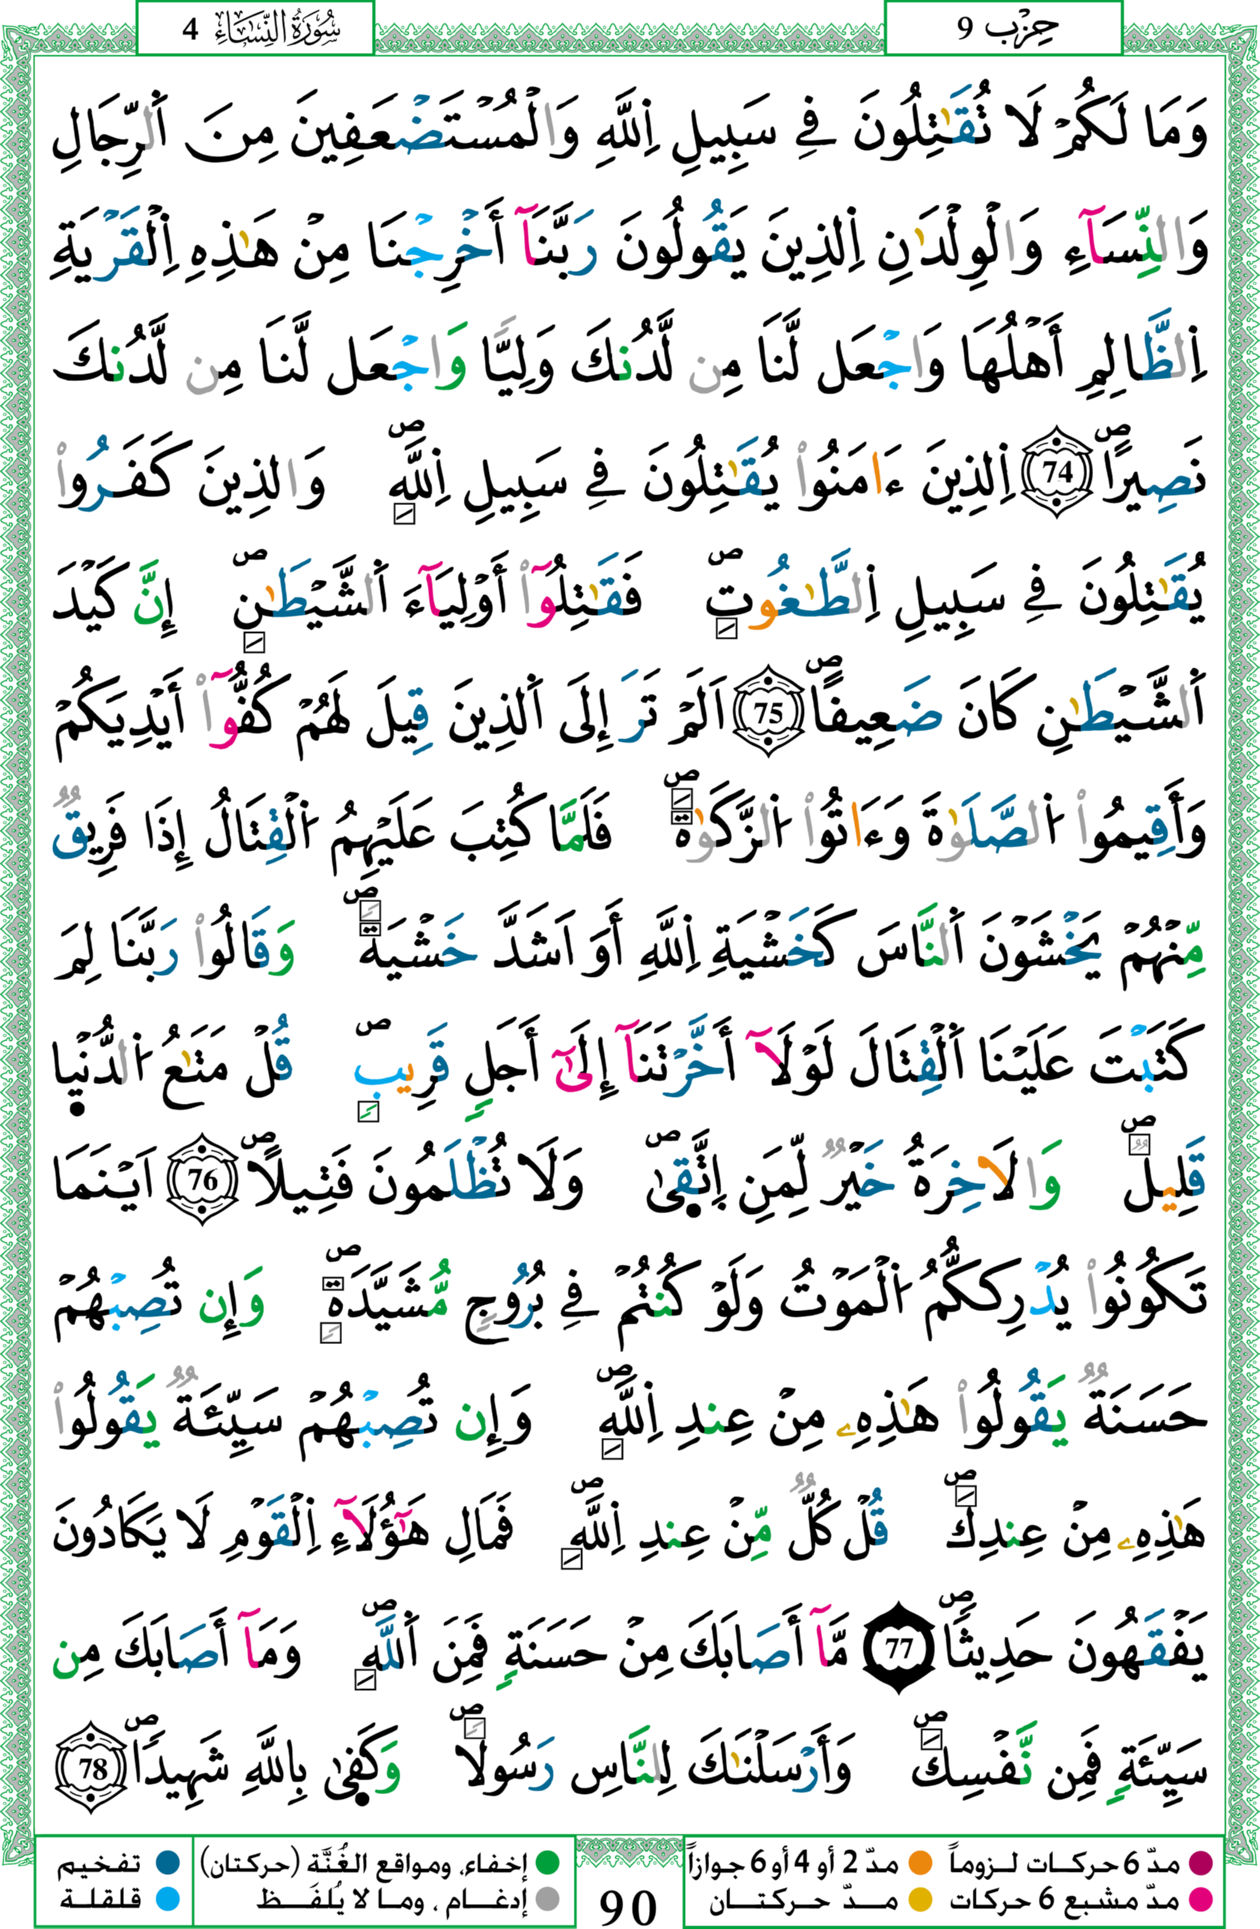 سُورَةُ النِّسَاءِ 4
حِزْب 9
وَمَا لَكُمْ لَا تُقَٰتِلُونَ فِے سَبِيلِ اِ۬للَّهِ وَالْمُسْتَضْعَفِينَ مِنَ اَ۬لرِّجَالِ
وَالنِّسَآءِ وَالْوِلْدَٰنِ اِ۬لذِينَ يَقُولُونَ رَبَّنَآ أَخْرِجْنَا مِنْ هَٰذِهِ اِ۬لْقَرْيَةِ
اِ۬لظَّالِمِ أَهْلُهَا وَاجْعَل لَّنَا مِن لَّدُنكَ وَلِيّٗا وَاجْعَل لَّنَا مِن لَّدُنكَ
نَصِيراًۖ 74 اِ۬لذِينَ ءَامَنُواْ يُقَٰتِلُونَ فِے سَبِيلِ اِ۬للَّهِۖ وَالذِينَ كَفَرُواْ
يُقَٰتِلُونَ فِے سَبِيلِ اِ۬لطَّٰغُوتِۖ فَقَٰتِلُوٓاْ أَوْلِيَآءَ اَ۬لشَّيْطَٰنِۖ إِنَّ كَيْدَ
اَ۬لشَّيْطَٰنِ كَانَ ضَعِيفاًۖ 75 اَلَمْ تَرَ إِلَى اَ۬لذِينَ قِيلَ لَهُمْ كُفُّوٓاْ أَيْدِيَكُمْ
وَأَقِيمُواْ اُ۬لصَّلَوٰةَ وَءَاتُواْ اُ۬لزَّكَوٰةَۖ فَلَمَّا كُتِبَ عَلَيْهِمُ اُ۬لْقِتَالُ إِذَا فَرِيقٞ
مِّنْهُمْ يَخْشَوْنَ اَ۬لنَّاسَ كَخَشْيَةِ اِ۬للَّهِ أَوَ اَشَدَّ خَشْيَةٗۖ وَقَالُواْ رَبَّنَا لِمَ
كَتَبْتَ عَلَيْنَا اَ۬لْقِتَالَ لَوْلَآ أَخَّرْتَنَآ إِلَىٰٓ أَجَلٖ قَرِيبٖۖ قُلْ مَتَٰعُ اُ۬لدُّنْي۪ا
قَلِيلٞۖ وَالَاخِرَةُ خَيْرٞ لِّمَنِ اِ۪تَّق۪ىٰۖ وَلَا تُظْلَمُونَ فَتِيلاًۖ 76 اَيْنَمَا
تَكُونُواْ يُدْرِككُّمُ اُ۬لْمَوْتُ وَلَوْ كُنتُمْ فِے بُرُوجٖ مُّشَيَّدَةٖۖ وَإِن تُصِبْهُمْ
حَسَنَةٞ يَقُولُواْ هَٰذِهِۦ مِنْ عِندِ اِ۬للَّهِۖ وَإِن تُصِبْهُمْ سَيِّئَةٞ يَقُولُواْ
هَٰذِهِۦ مِنْ عِندِكَۖ قُلْ كُلّٞ مِّنْ عِندِ اِ۬للَّهِۖ فَمَالِ هَٰٓؤُلَآءِ اِ۬لْقَوْمِ لَا يَكَادُونَ
يَفْقَهُونَ حَدِيثاًۖ 77 مَّآ أَصَابَكَ مِنْ حَسَنَةٖ فَمِنَ اَ۬للَّهِۖ وَمَآ أَصَابَكَ مِن
سَيِّئَةٖ فَمِن نَّفْسِكَۖ وَأَرْسَلْنَٰكَ لِلنَّاسِ رَسُولاٗۖ وَكَف۪ىٰ بِاللَّهِ شَهِيداًۖ 78
مدّ 6 حركات لـزومـاً مدّ 2 أو 4 أو 6 جوازاً
مدّ مشبع 6 حركات مـدّ حـركتـان
إخفاء، ومواقع الغُنَّة (حركتان) تفخيم
إدغـام ، ومـا لا يُلفَـظ قلقلة
90